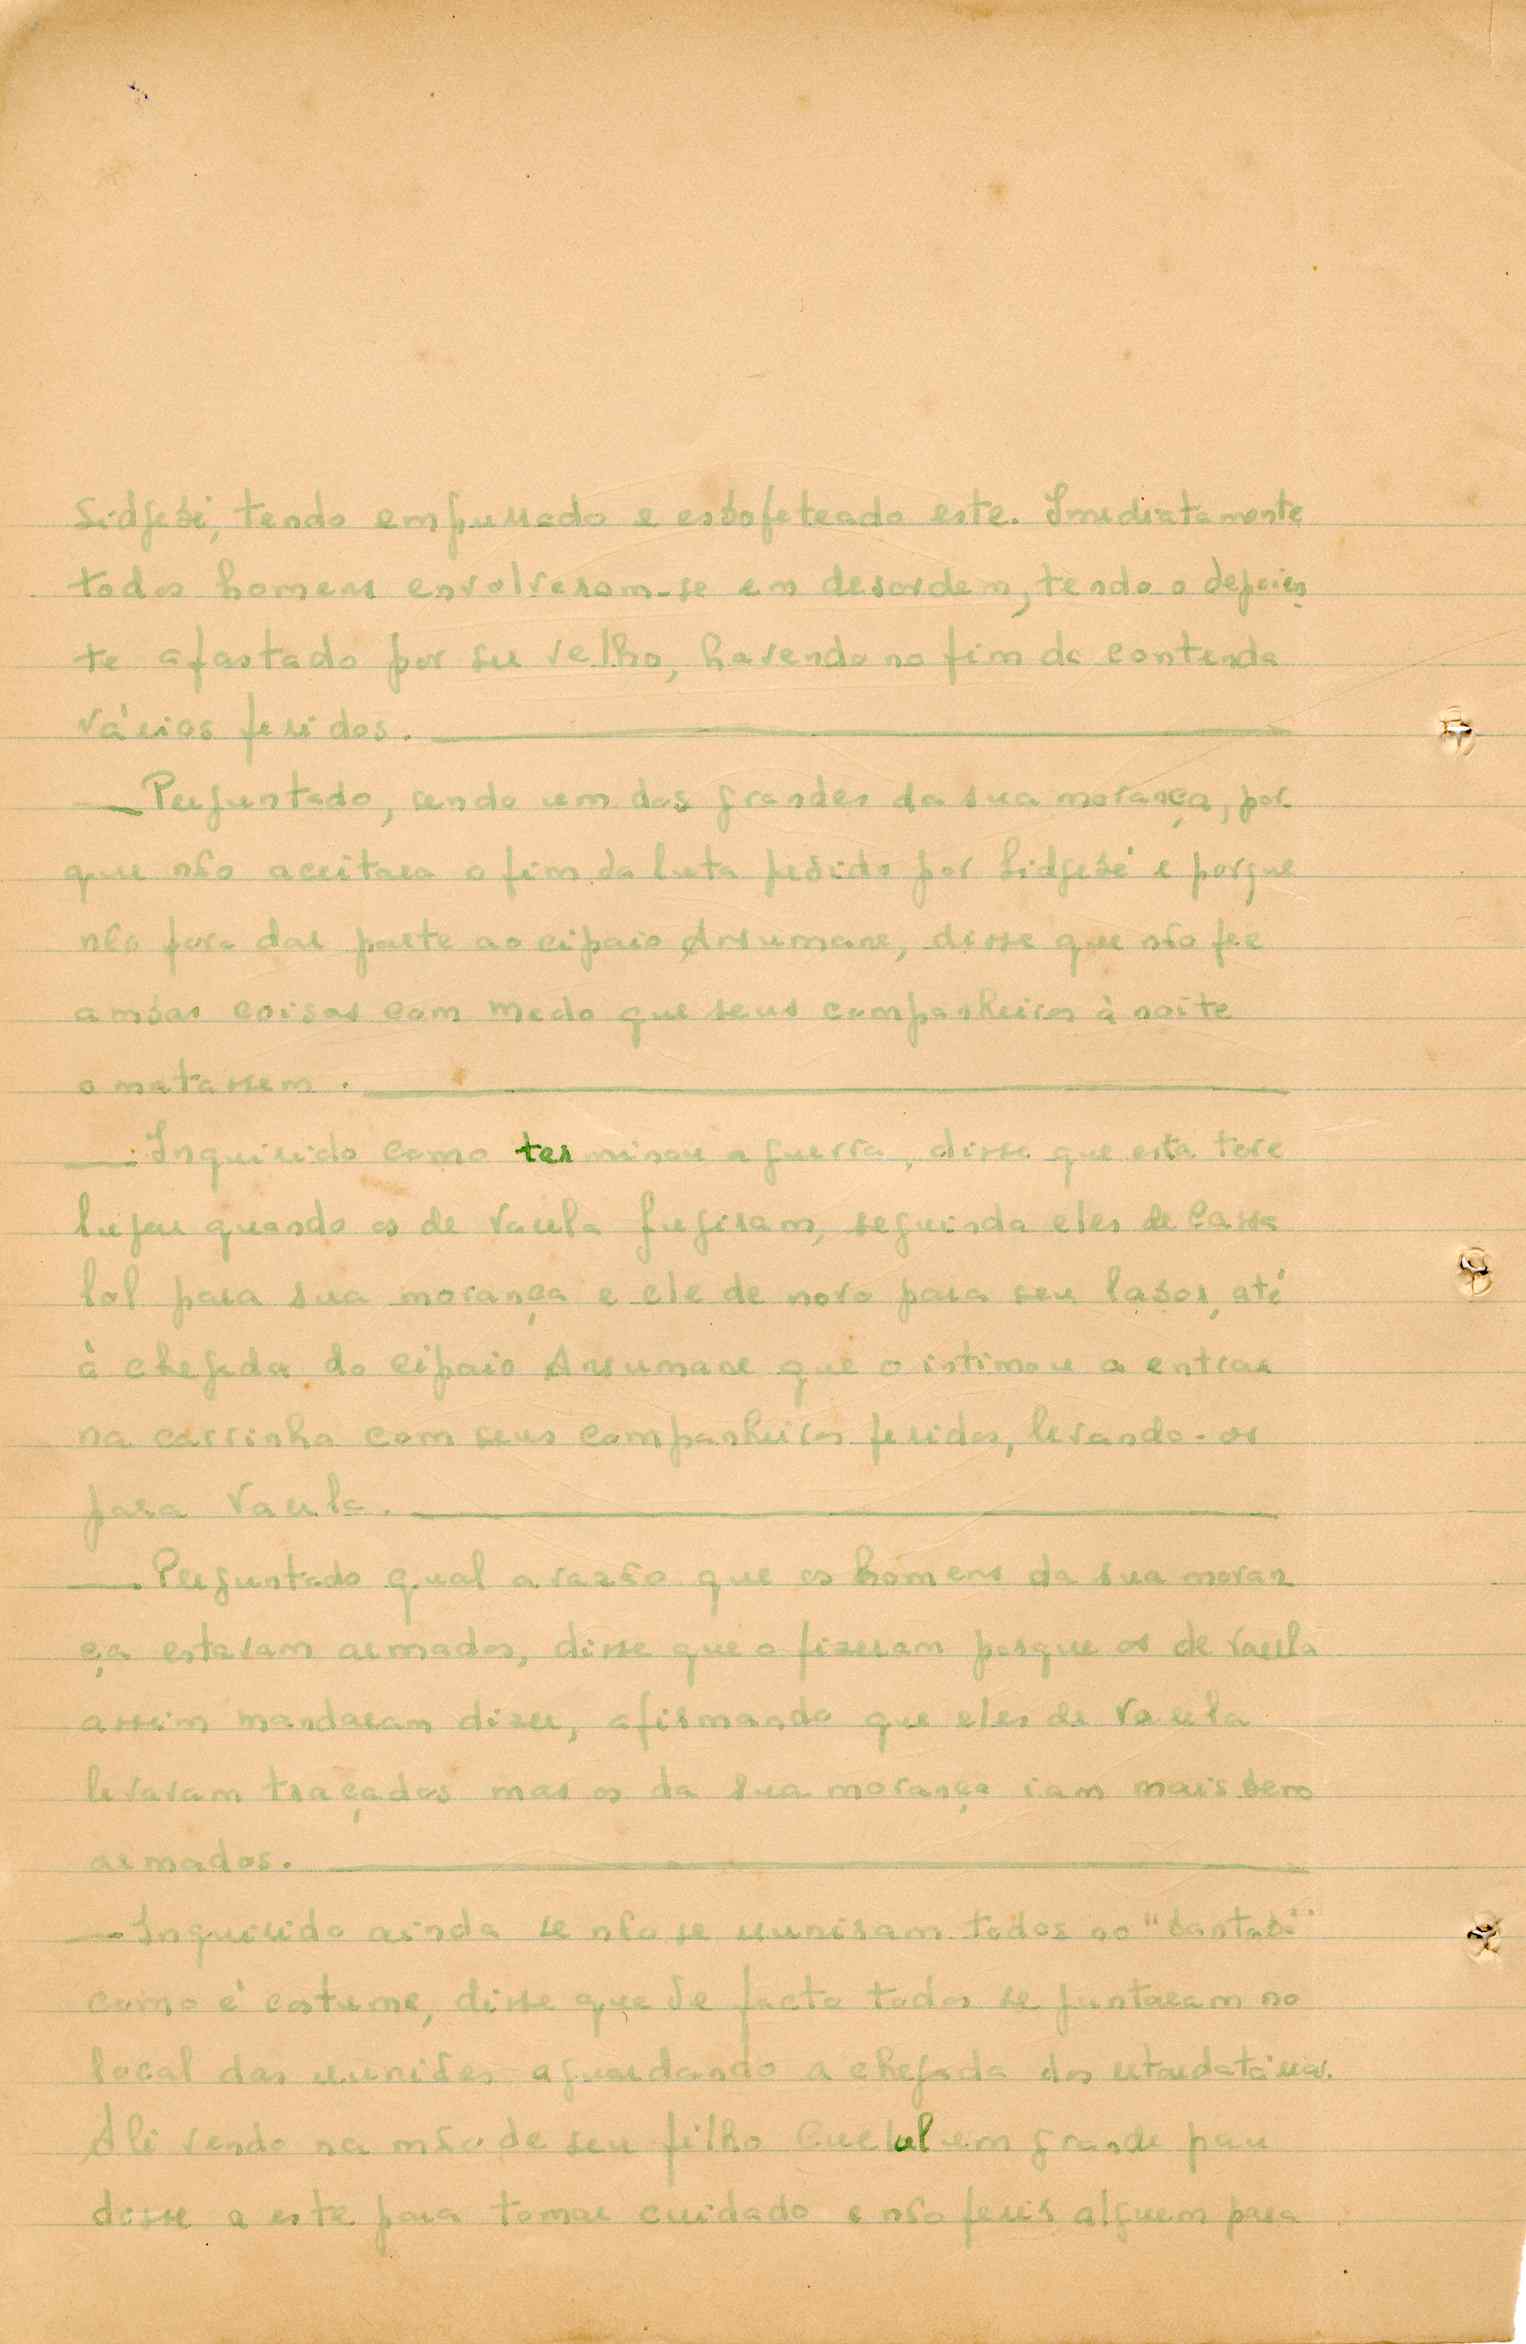 Sidjebé, tendo empurrado e esbofeteado este. Imediatamente
todos homens envolveram-se em desordem, tendo o depoen
te afastado por ser velho, havendo no fim da contenda
vários feridos.
— Perguntado, sendo um dos grandes da sua morança, por
que não aceitara o fim da luta pedido por Sidjebé e porque
não fora dar parte ao cipaio Ansumane, disse que não fez
ambas coisas com medo que seus companheiros à noite
o matassem.
— Inquirido como terminou a guerra, disse que esta teve
lugar quando os de Varela fugiram, seguindo eles de Cassa
lol para sua morança e ele de novo para seu labor, até
à chegada do cipaio Ansumane que o intimou a entrar
na carrinha com seus companheiros feridos, levando-os
para Varela.
— Perguntado qual a razão que os homens da sua moran
ça estavam armados, disse que o fizeram porque os de Varela
assim mandaram dizer, afirmando que eles de Varela
levavam traçados mas os da sua morança iam mais bem
armados.
— Inquirido ainda se não se reuniram todos no "bantabá"
como é costume, disse que de facto todos se juntaram no
local das reuniões aguardando a chegada dos retardatários.
Ali vendo na mão de seu filho um grande pau
disse a este para tomar cuidado e não ferir alguem para